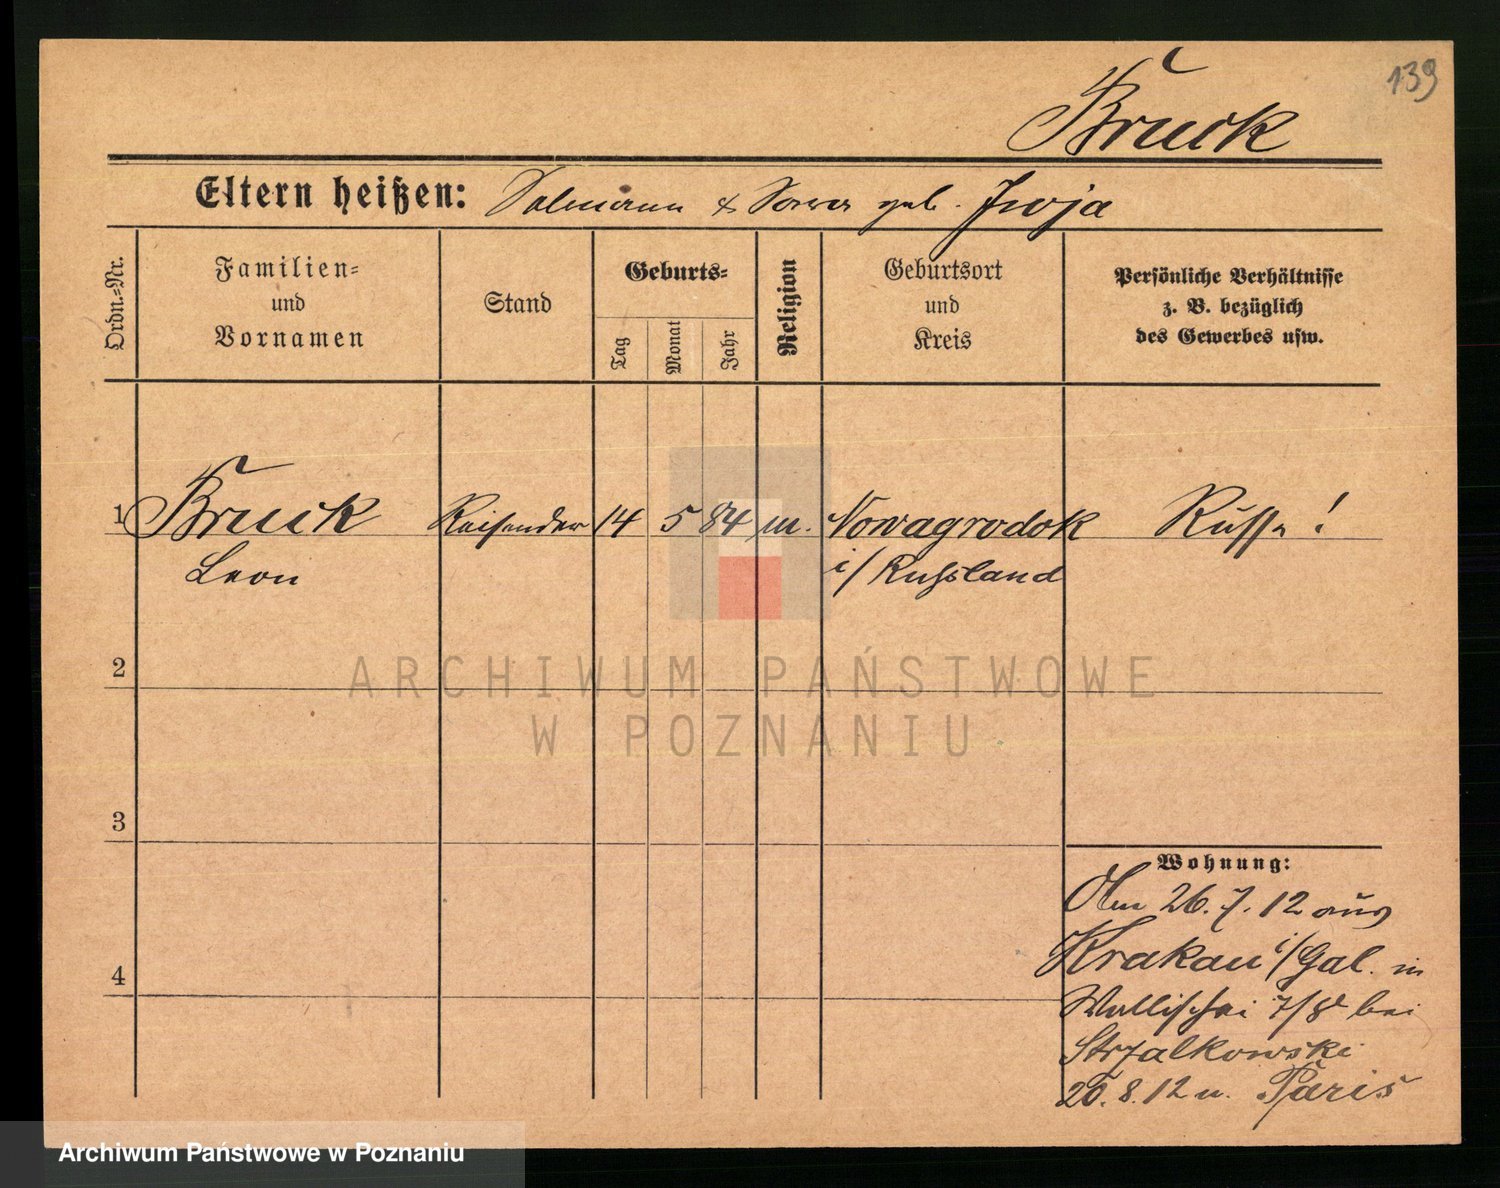 139
Bruck
Eltern heißen: Salmann & geb. Iwoja
Ordn.=Nr.
Familien=
und
Vornamen
Stand
Geburts=
Tag
Monat
Jahr
Religion
Geburtsort
und
Kreis
Persönliche Verhältnisse
z. B. bezüglich
des Gewerbes usw.
1 Bruck Reisender 14 5 84 m. Nowagrodok Russe!
Leon i/Russland
2
ARCHIWUM PAŃSTWOWE
W POZNANIU
3
Wohnung:
26.7.12 aus
4
Krakau i/Gal. in
Wallischei 7/8 bei
Strzalkowski
20.8.12 n. Paris
Archiwum Państwowe w Poznaniu